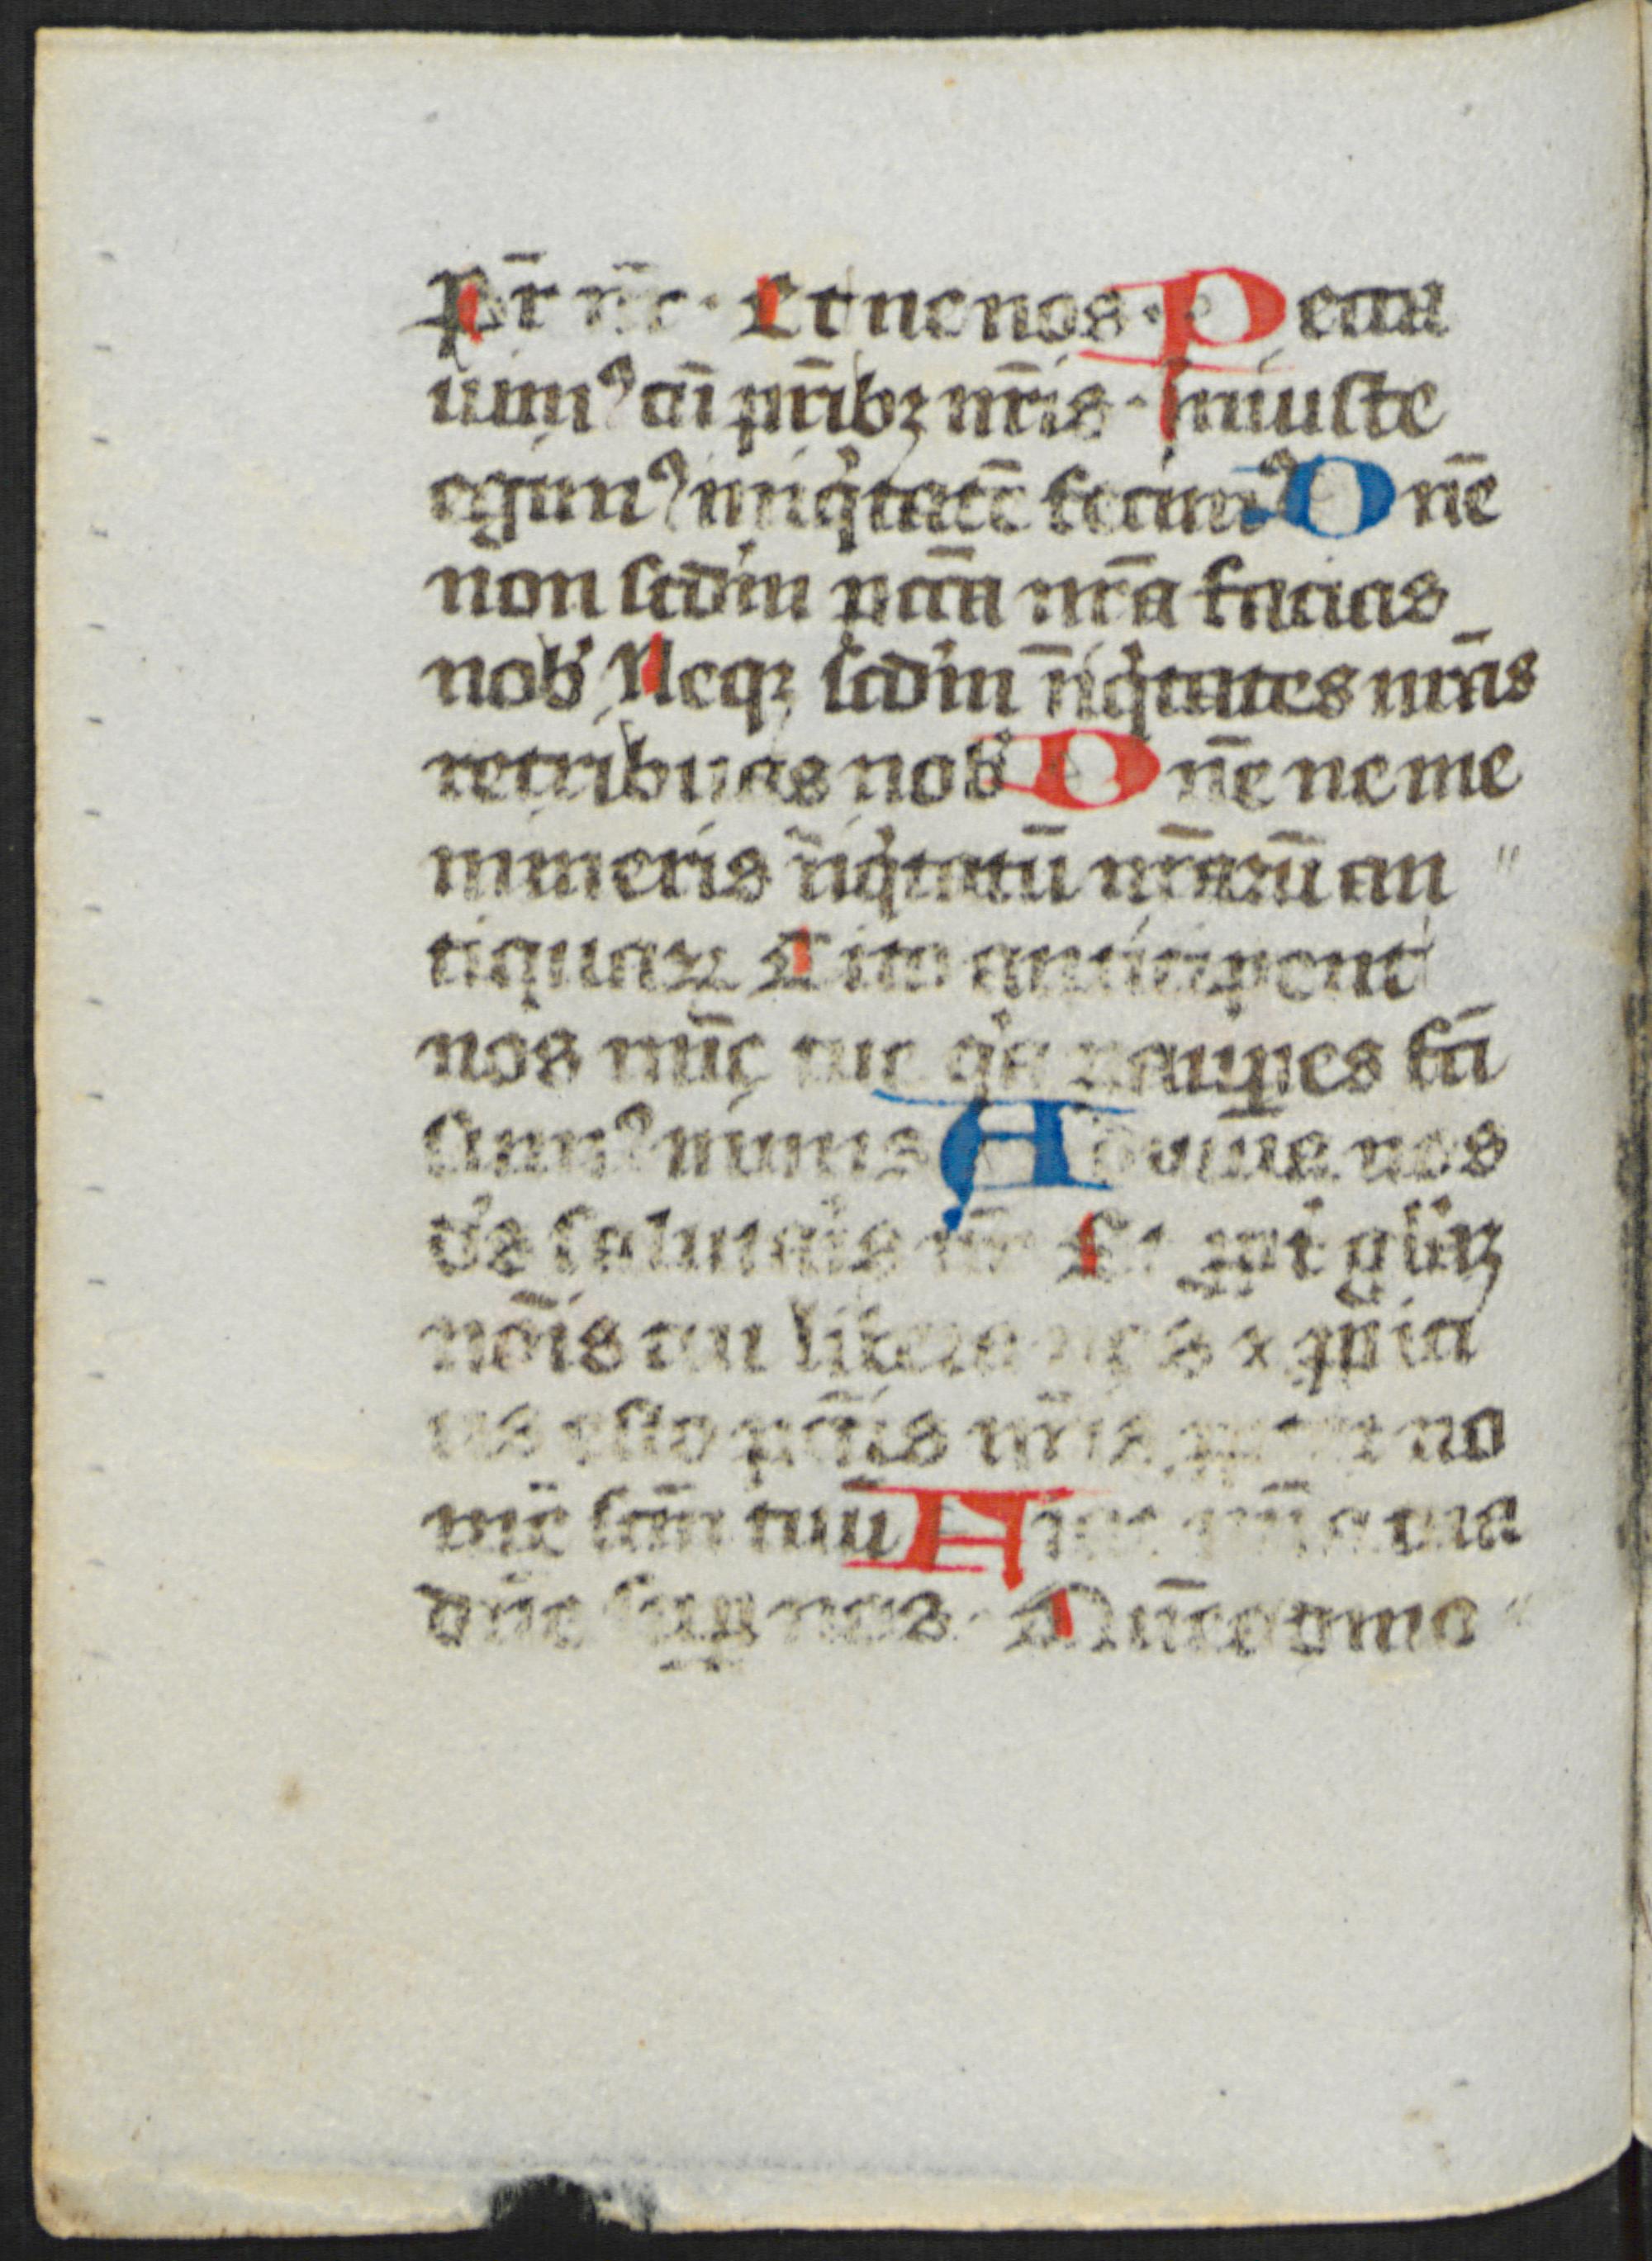 Pr̄ nr̄. Et ne nos. Pecca
uimꝰ cū pr̄ibꝫ nr̄is. Iniuste
egimꝰ iniqͥtatē fecimꝰ Dn̄e
non scd̄m pcc̄a nr̄a facias
nob̾ Neqꝫ scd̄m īiqͥtates nr̄as
retribuas nob̾ Dn̄e ne me
mineris īiqͥtatū nr̄arū an〃
tiquaꝝ Cito anticipent
nos mīe tue qͥa pauꝑes fcī
sumꝰ nimis Adiuua nos
dͤs salutaris nr̄ Et ꝓpt̾ gl̄iā
noīs tui libera nos ⁊ ꝓpicī
us esto pcc̄is nr̄is ꝓpt̾ no
mē scm̄ tuū mīa tua
dn̄e suꝑ nos. Quēadmo〃